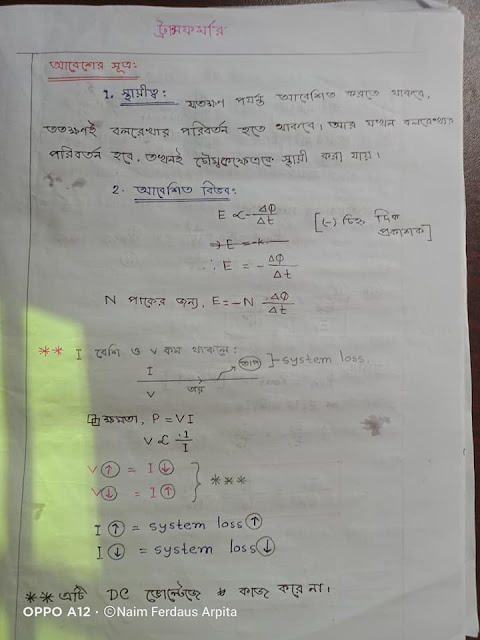 ট্রান্সফর্মার
আবেশের সূত্র:
1. স্থায়ীত্ব: যতক্ষণ পর্যন্ত আবেশিত করতে থাকবে,
ততক্ষণই বলরেখার পরিবর্তন হতে থাকবে। আর যখন বলরেখার
পরিবর্তন হবে, তখনই চৌম্বকক্ষেত্রকে স্থায়ী করা যায়।
2. আবেশিত বিভব:
E ∝ -ΔΦ/Δt [(-) চিহ্ন দিক
প্রকাশক]
⇒ E = -k
∴ E = - ΔΦ/Δt
N পাকের জন্য, E = -N ΔΦ/Δt
** I বেশি ও V কম থাকলে:
I তাপ }-system loss.
V তার
ক্ষমতা, P = VI
V ∝ 1/I
V↑ = I↓
V↓ = I↑ } ***
I↑ = system loss↑
I↓ = system loss↓
** এটি DC ভোল্টেজে কাজ করে না।
OPPO A12 · ©Naim Ferdaus Arpita